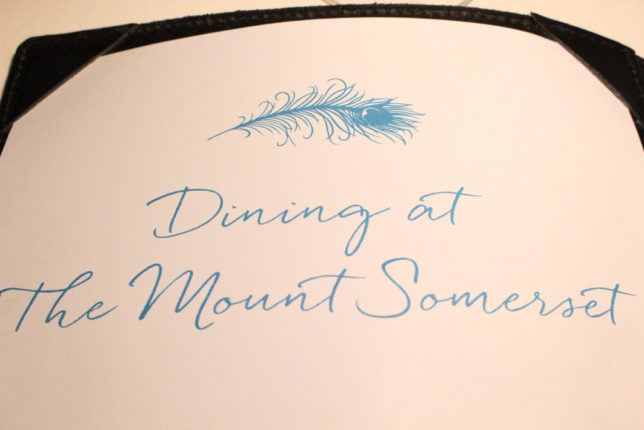 Dining at
The Mount Somerset